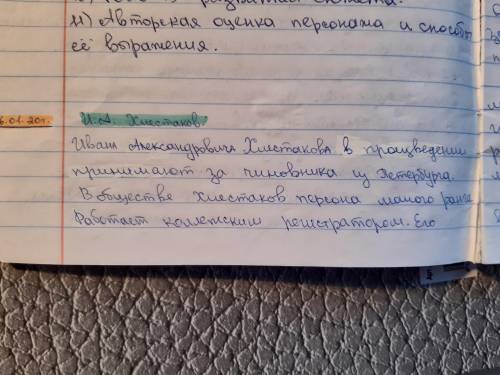 11) Авторская оценка персонажа и способы
её выражения.
6.01.20г.
И. А. Хлестаков.
Ивана Александровича Хлестакова в произведении
принимают за чиновника из Петербурга.
В обществе Хлестаков персона малого ранга
Работает коллежским регистратором. Его